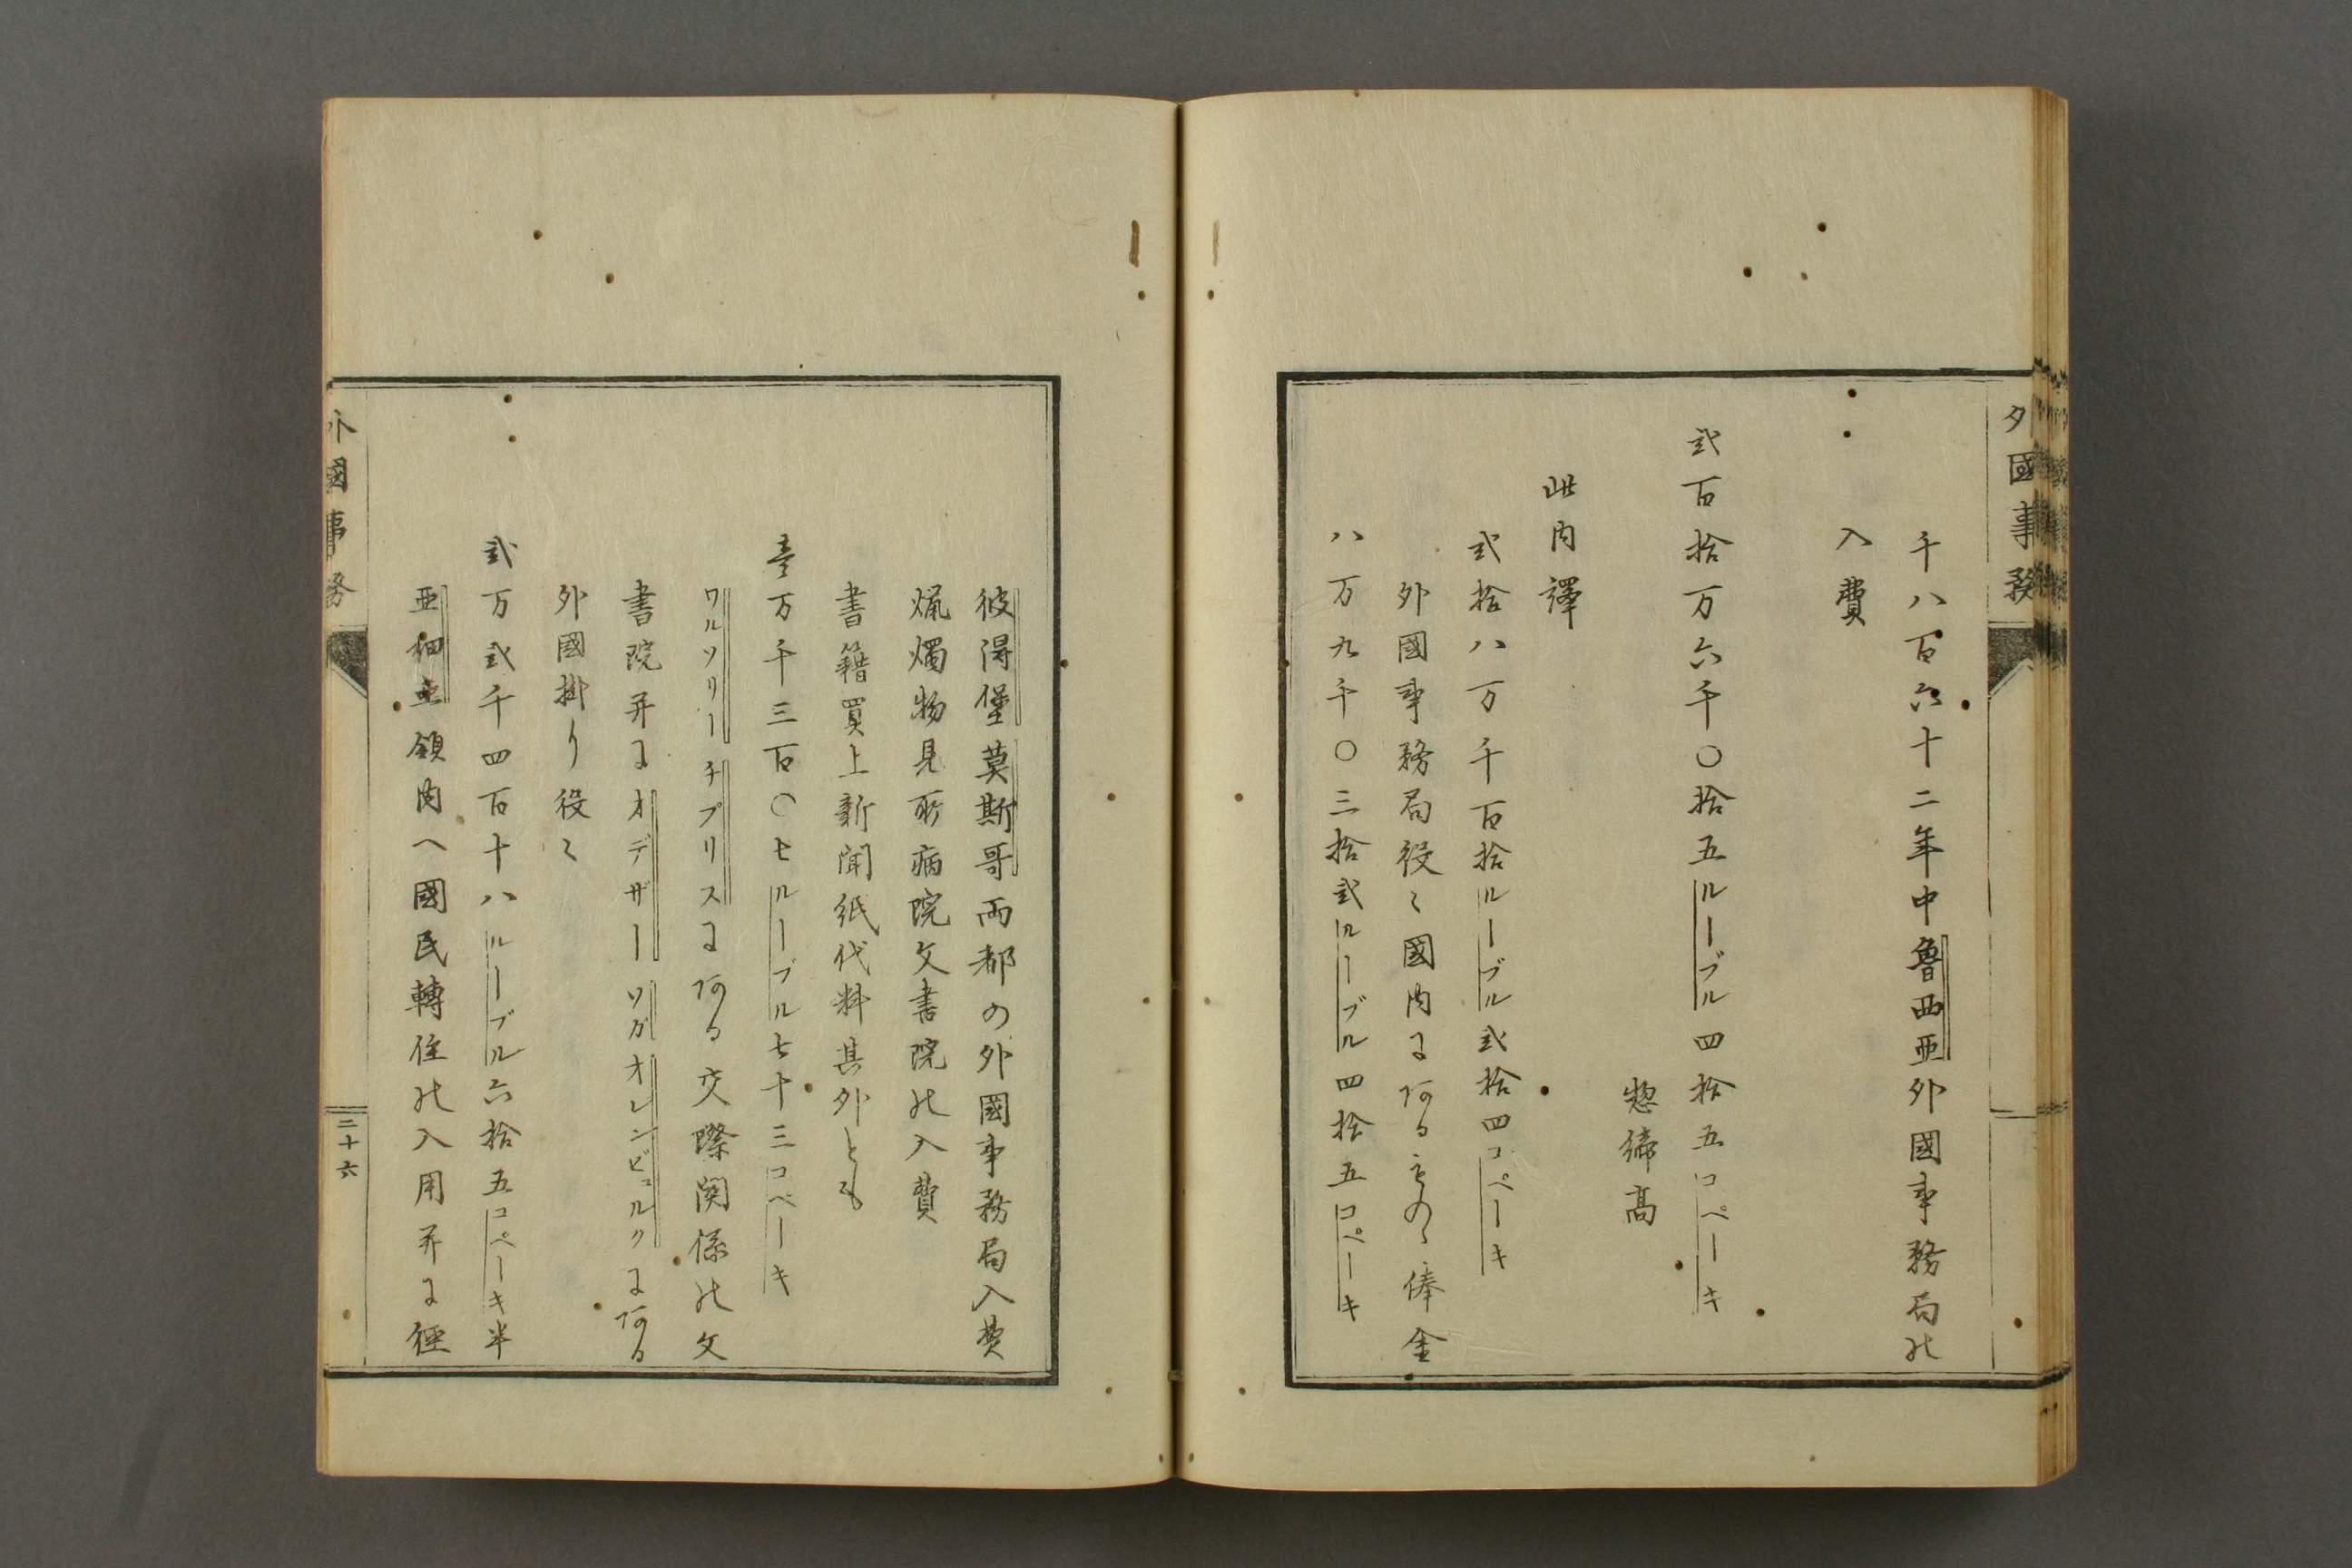 外國事務
千八百六十二年中魯西亜外國事務局の
入費
弐百拾万六千〇拾五ルーブル四拾五コペーキ
惣締高
此内譯
弐拾八万千百拾ルーブル弐拾四コペーキ
外國事務局役々國内にある者の俸金
八万九千〇三拾弐ルーブル四拾五コペーキ
彼得堡莫斯哥両都の外國事務局入費
燭物見所病院文書院の入費
書籍買上新聞紙代料其外とも
壱万千三百〇七ルーブル七十三コペーキ
ワルソリーチプリスにある交際関係の文
書院并にオデザーソガオレンビュルクにある
外國掛り役々
弐万弐千四百十八ルーブル六拾五コペーキ半
亜細亜領内へ國民轉住の入用并に
外國事務
二十六